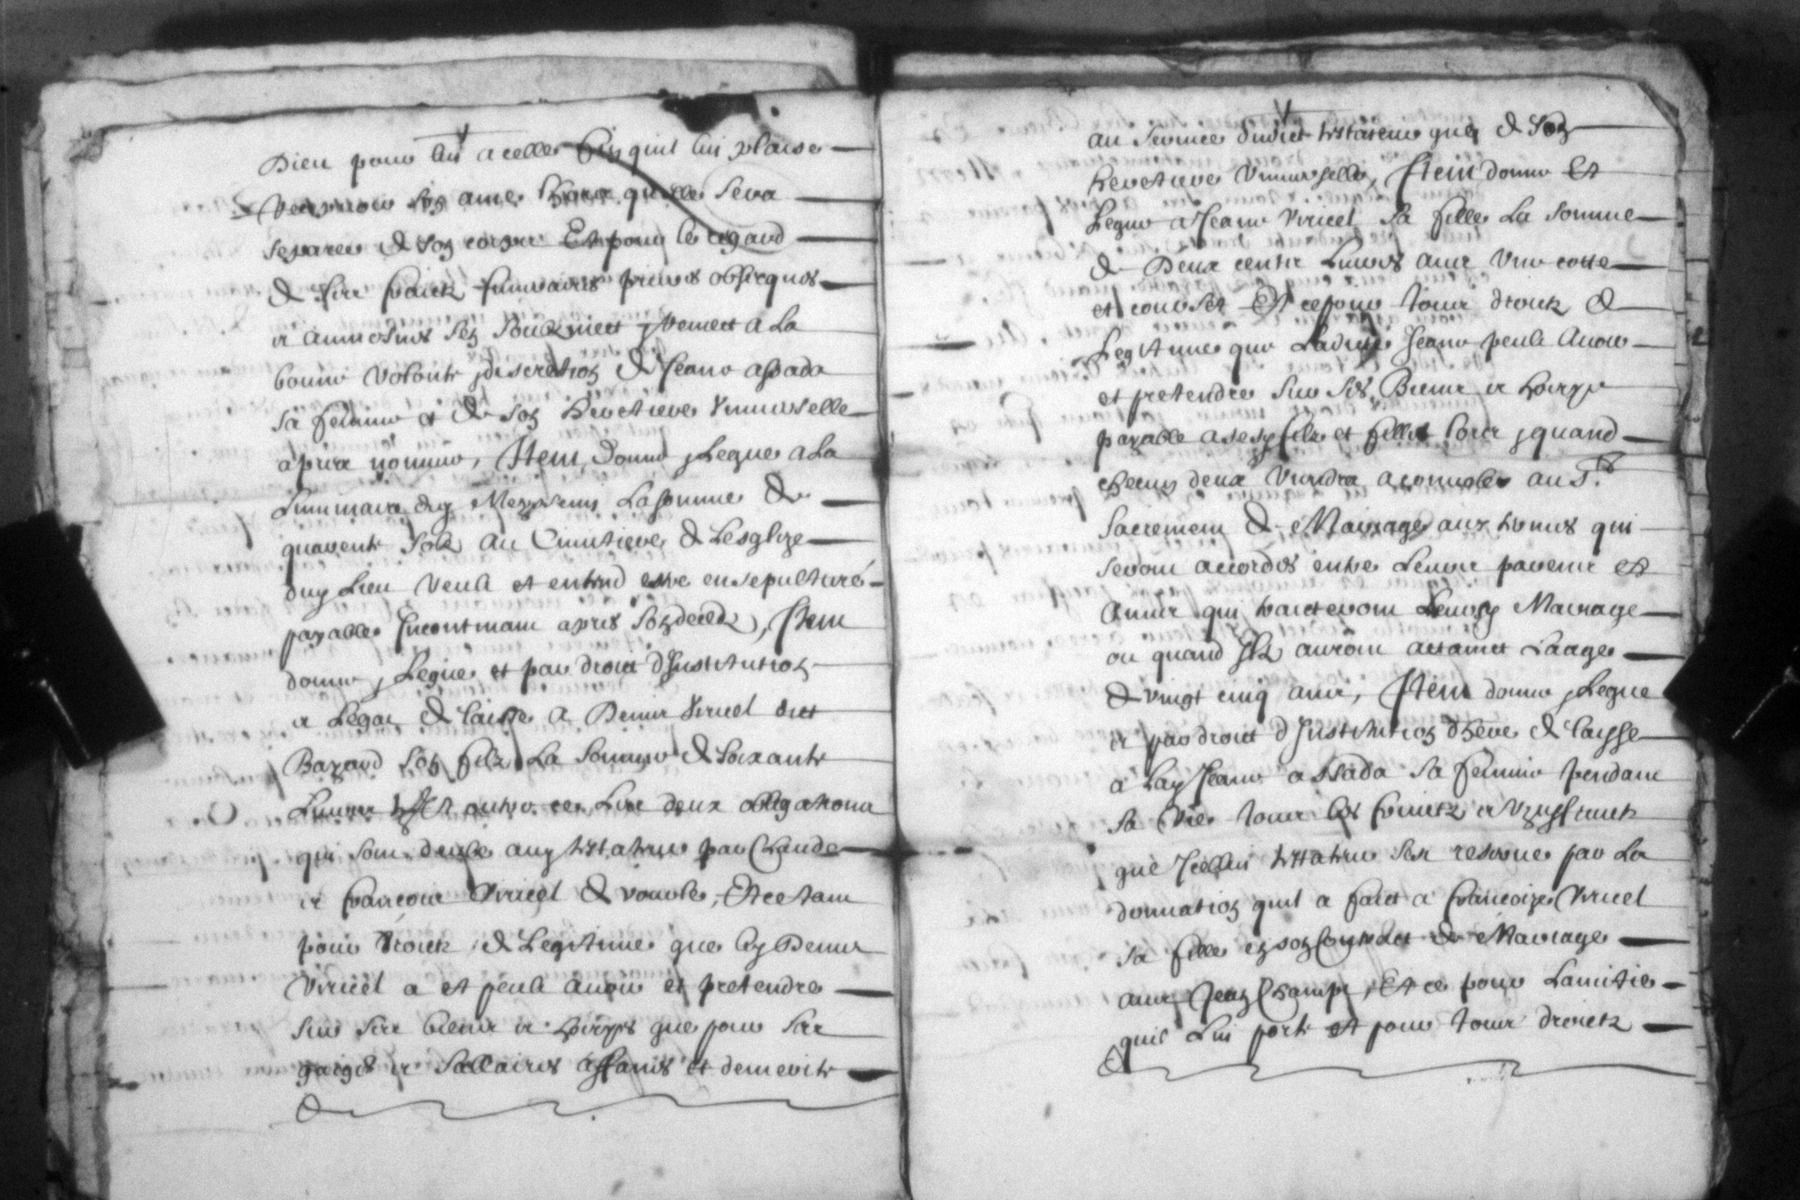 Dieu pour luy a celle fin quil luy plaise
recepvoir son ame lhors quelle sera
separee de son corps Et pour le regard
de ses fraictz funeraires prieres obseques
et aumosnes sen soubzmect remect a la
bonne volonte discretion de Jeane assada
sa femme et de son heretiere universelle
apres nommee, Item donne Legue a la
Luminaire du Lasomme de
quarente solz au Cimitiere de Lesglize
duq Lieu veult et entend estre ensepulturé
payable Incontinant apres son deced, Item
donne Legue et par droict dInstitution
et Legat de laisse a Denis Viricel dict
Bayard son filz La somme de soixante
Livres et outre ce Les deux obligations
qui sont deube auq testateur par Claude
et francois Viricel de , Et ce tant
pour droictz de Legitime que led Denis
Viricel a et peult avoir et pretendre
sur ses biens et hoirye que pour ses
gaiges et sallaires affanes et demerite
&
au service dudict testateur que de son
heretiere universelle, Item donne Et
Legue a Jeane Viricel sa fille La somme
de Deux centz Livres avec une cotte
et Et ce pour tous droictz de
Legitime que Ladicte Jeane peult avoir
et pretendre sur ses Biens et hoirye
payable a sesd filz et fille lors quand
checun deux viendra a au St
Sacrement de Mariage aux termes qui
seront accordes entre Leurs parents et
amis qui traicteront Leursd Mariage
ou quand Ilz auront attainct Laage
de vingt cinq ans, Item donne Legue
et par droict dInstitution dhere de laisse
a Lad Jeane assada sa femme pendant
sa vie tous les fruictz et uzuffruictz
que Icelluy testateur sest reserve par La
donnation quil a faict a francoize Viricel
sa fille en son Contract de Mariage
avec Jean Champ, Et ce pour Lamitie
quil Luy porte et pour tous droictz
&